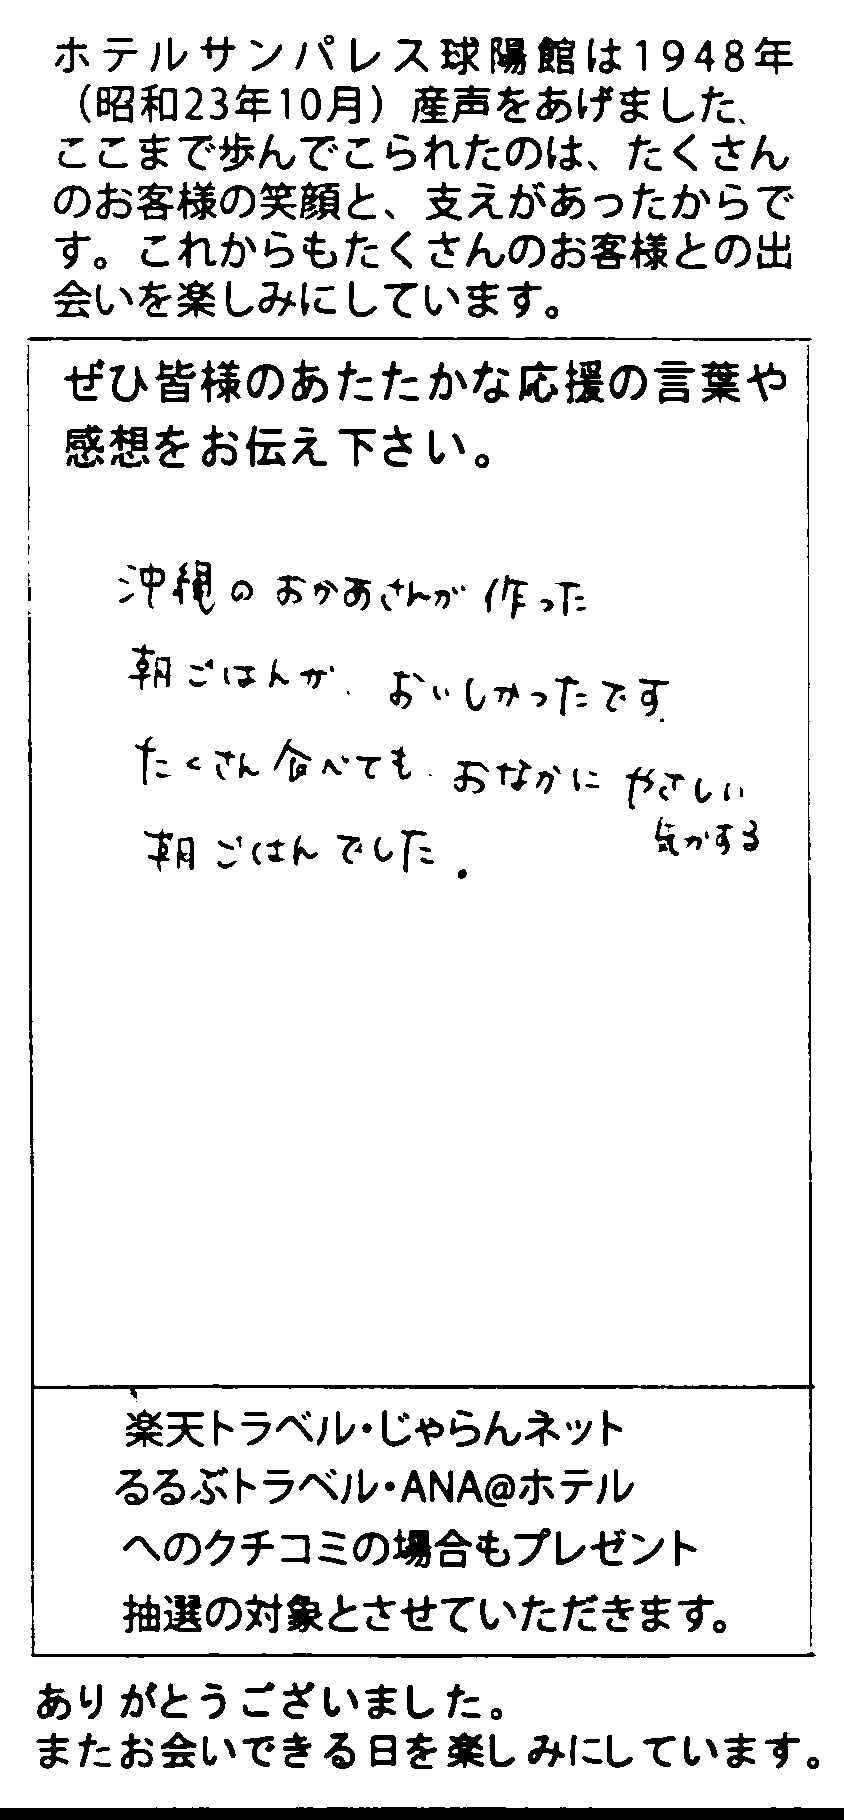 ホテルサンパレス球陽館は1948年
（昭和23年10月）産声をあげました、
ここまで歩んでこられたのは、たくさん
のお客様の笑顔と、支えがあったからで
す。これからもたくさんのお客様との出
会いを楽しみにしています。
ぜひ皆様のあたたかな応援の言葉や
感想をお伝え下さい。
沖縄のおかあさんが作った
朝ごはんが、おいしかったです。
たくさん食べても、おなかにやさしい
気がする
朝ごはんでした。
楽天トラベル・じゃらんネット
るるぶトラベル・ANA@ホテル
へのクチコミの場合もプレゼント
抽選の対象とさせていただきます。
ありがとうございました。
またお会いできる日を楽しみにしています。